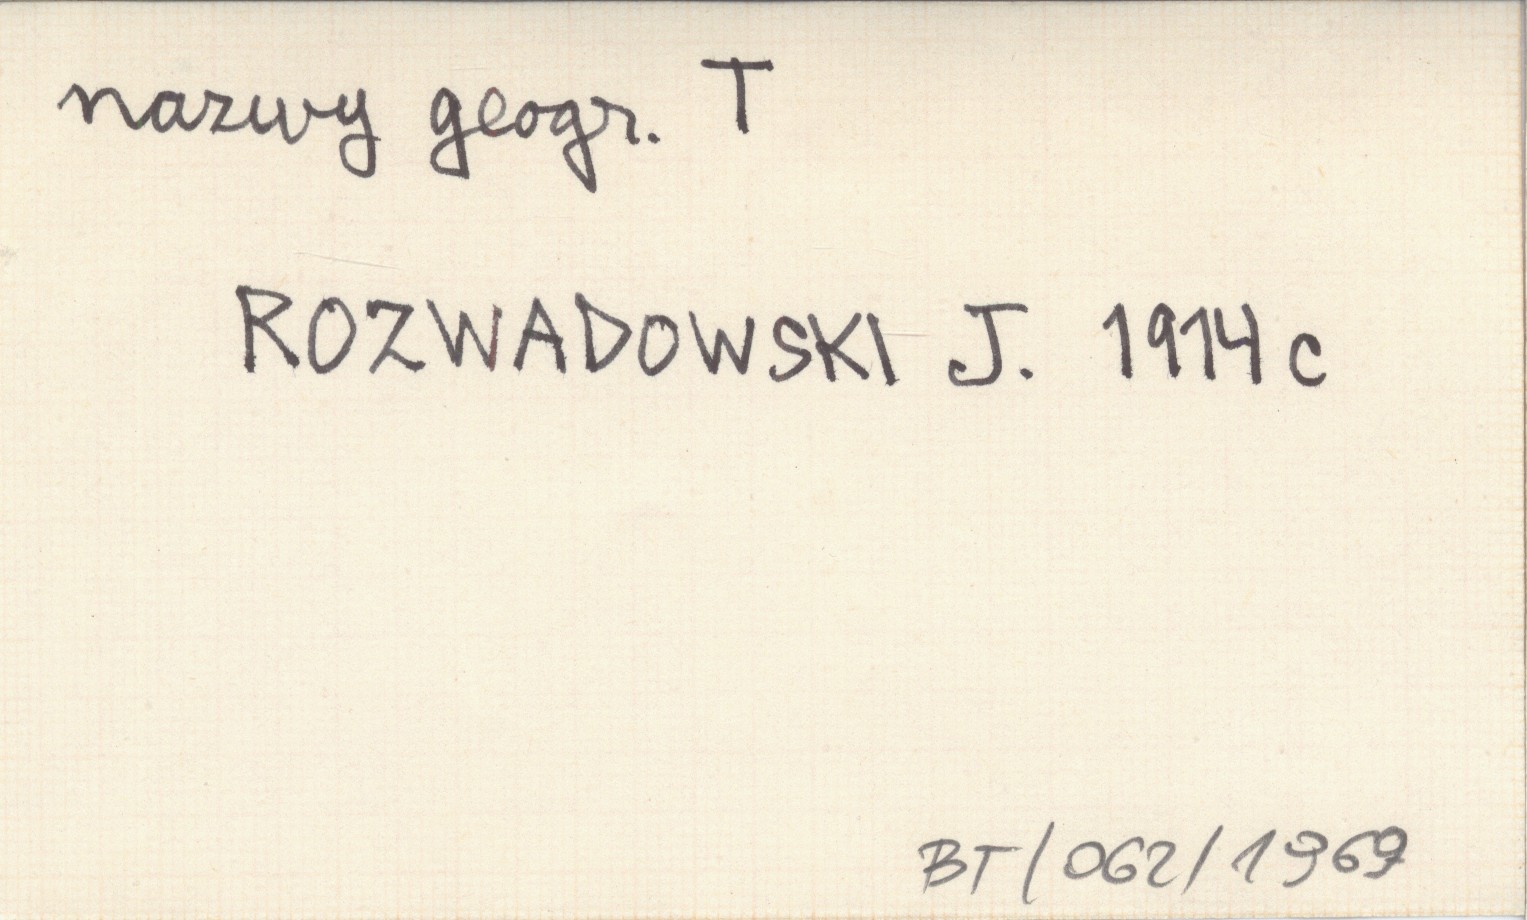 nazwy geogr. T
ROZWADOWSKI J. 1914 c
BT/062/1969